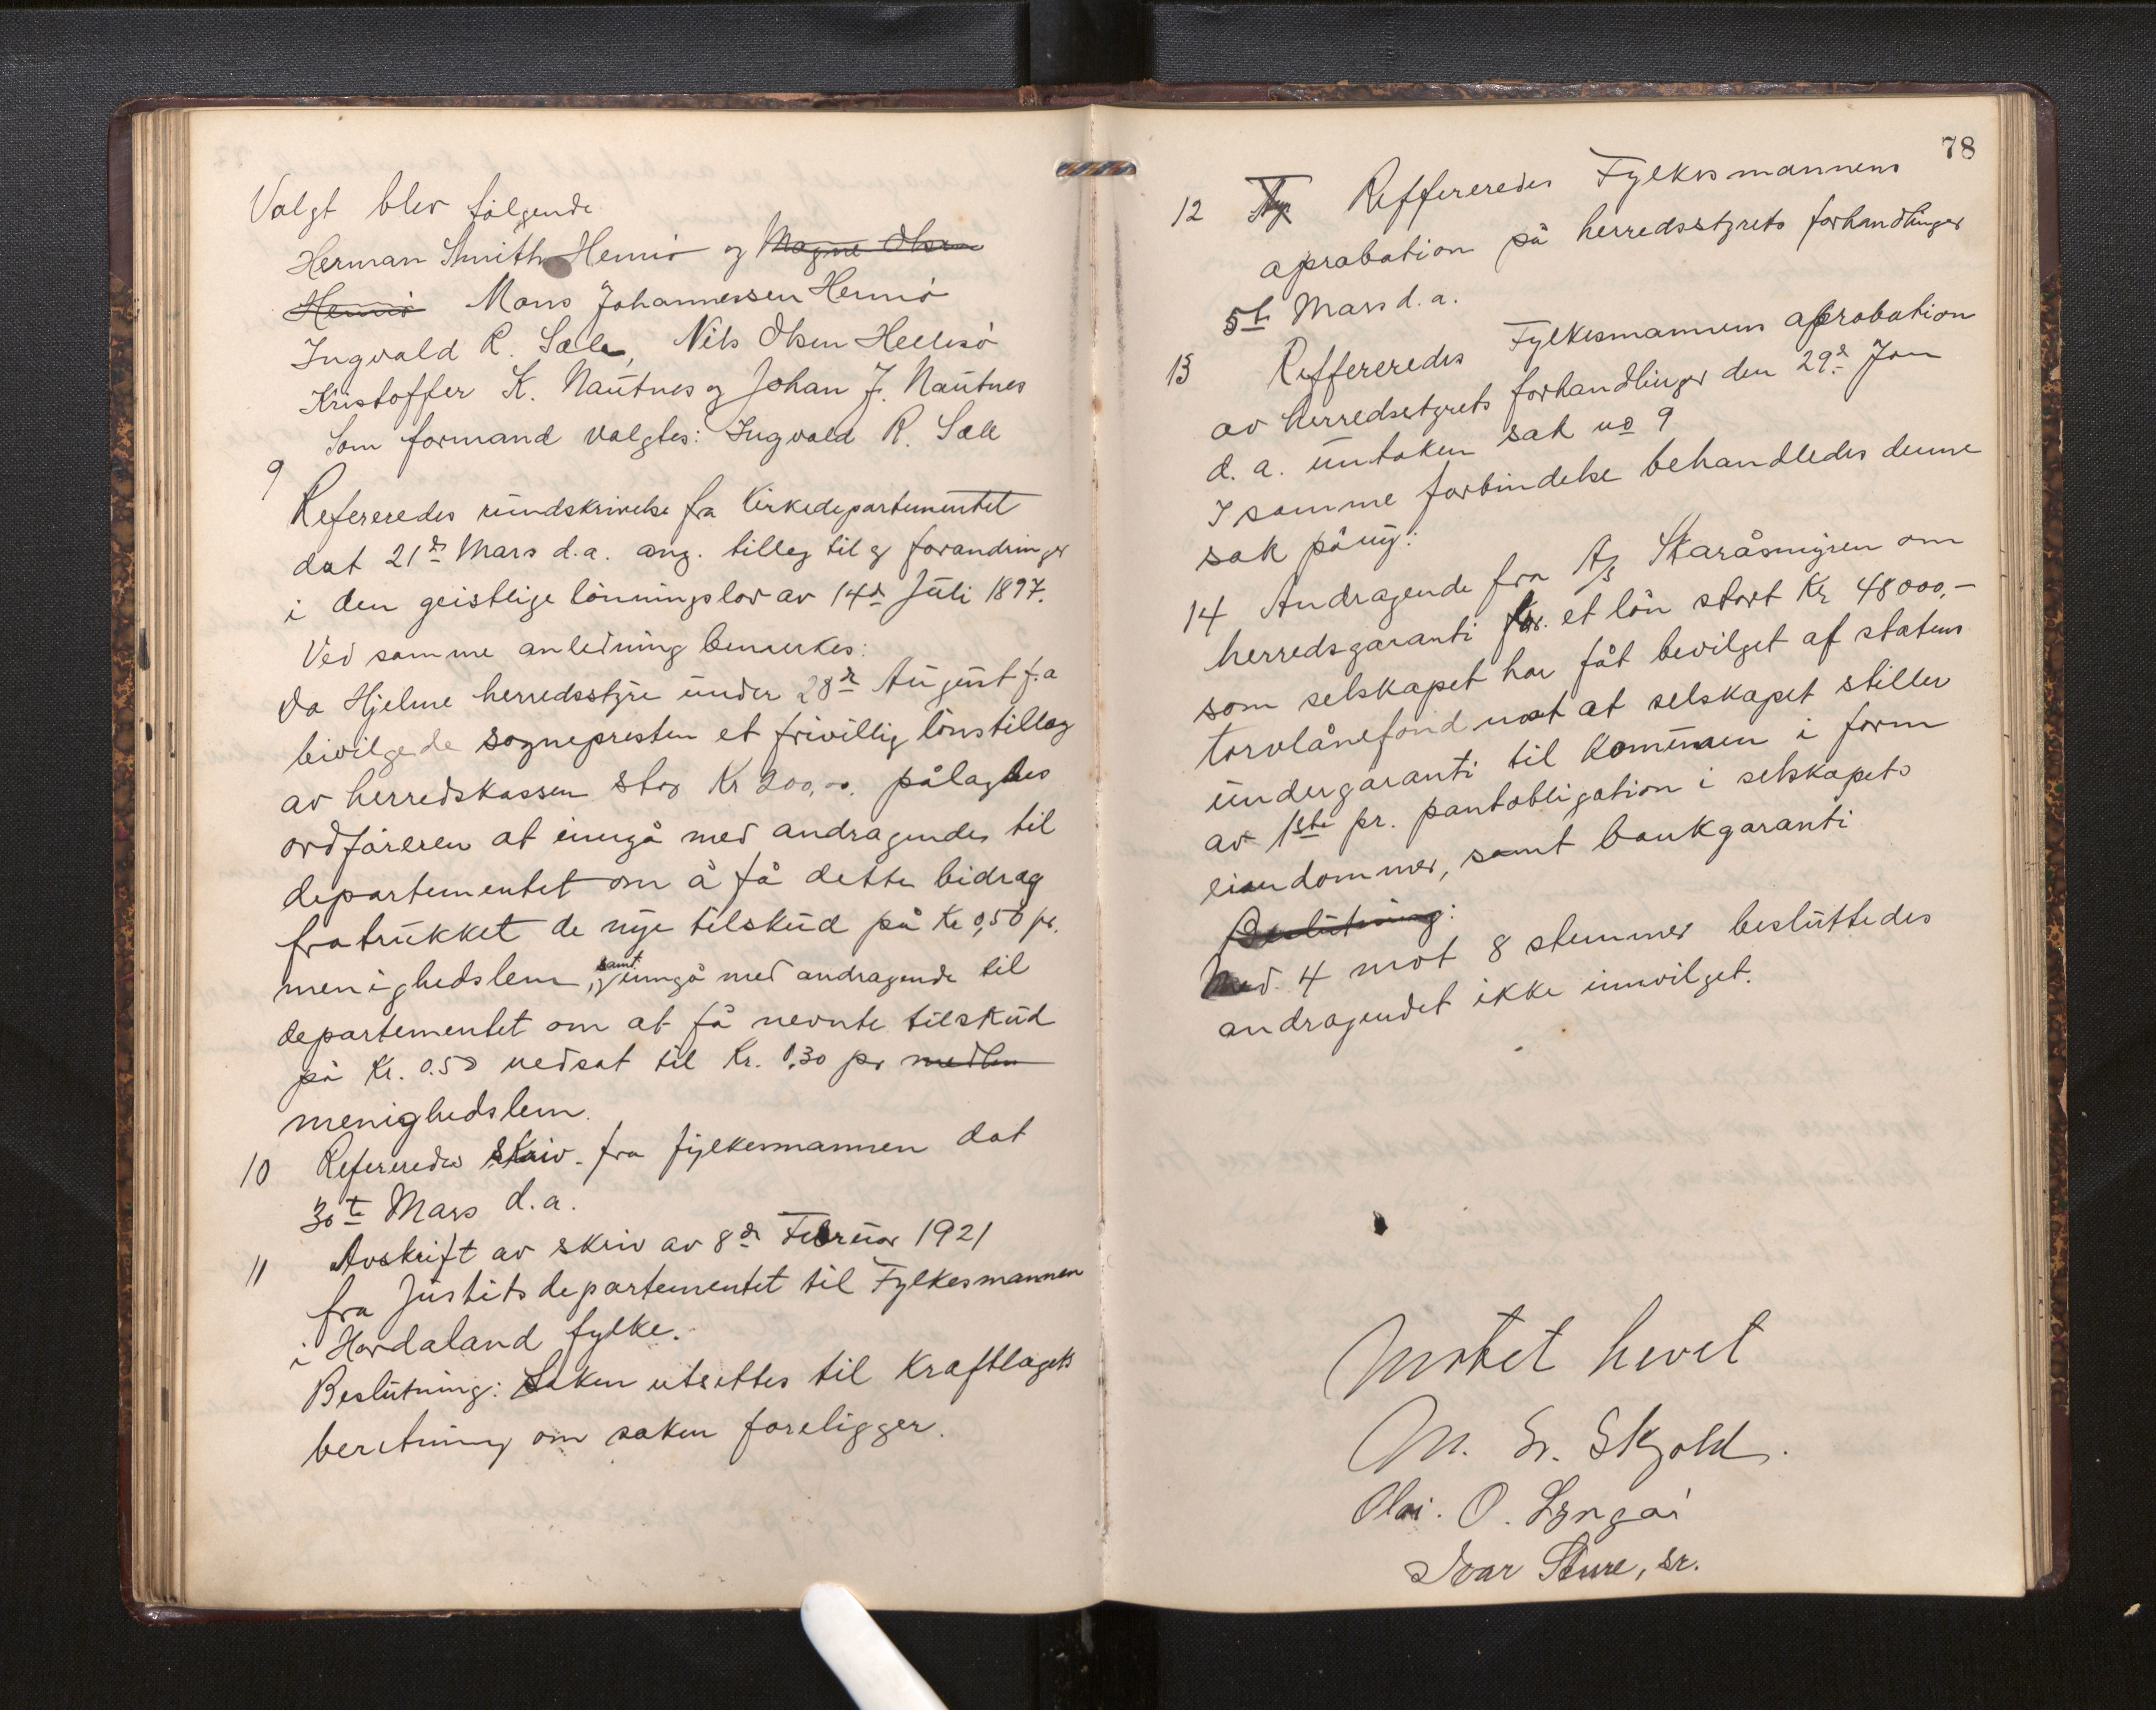 Valgt blev følgende
Herman Smith Hernø og Magne Olsen
Hernø Mons Johannessen Hernø
Ingvald R. Sæle, Nils Olsen Hellesø
Kristoffer K. Nautnes og Johan J. Nautnes
Som formand valgtes: Ingvald R. Sæle
9
Refereredes rundskrivelse fra Kirkedepartementet
dat 21de Mars d.a. ang. tilleg til og forandringer
i den geistlige lønningslov av 14de Juli 1897.
Ved samme anledning bemerkes:
Da Hjelme herredsstyre under 28de August f.a
bivilgede sognepresten et frivillig lønstillæg
av herredskassen stor Kr 200,00. pålagdes
ordføreren at inngå med andragendes til
departementet om å få dette bidrag
fratrukket de nye tilskud på Kr 0,50 pr.
menighedslem, samt inngå med andragende til
departementet om at få nevnte tilskud
på Kr. 0.50 nedsat til Kr. 0,30 pr medlem
menighedslem.
10 Refereredes skriv. fra fylkesmannen dat
30te Mars d.a.
11 Avskrift av skriv av 8de Februar 1921
fra Justitsdepartementet til Fylkesmannen
i Hordaland fylke.
Beslutning: Saken utsettes til Kraftlagets
beretning om saken foreligger.
78
12 Reffereredes Fylkesmannens
aprobation på herredsstyrets forhandlinger
5te Mars d.a.
13 Reffereredes Fylkesmannens aprobation
av herredsstyrets forhandlinger den 29de Jan
d.a. untaken sak no 9
I samme forbindelse behandledes denne
sak påny:
14 Andragende fra A/S Staråsmyren om
herredsgaranti for et lån stort Kr 48000,-
som selskapet har fåt bevilget af statens
torvlånefond mot at selskapet stiller
undergaranti til kommunen i form
av 1ste pr. pantobligation i selskapets
eiendommer, samt bankgaranti
Beslutning:
Med 4 mot 8 stemmer besluttedes
andragendet ikke innvilget.
Møtet hevet
M. Sr. Skjold.
Olai. O. Lyngøi
Ivar Sture, sr.